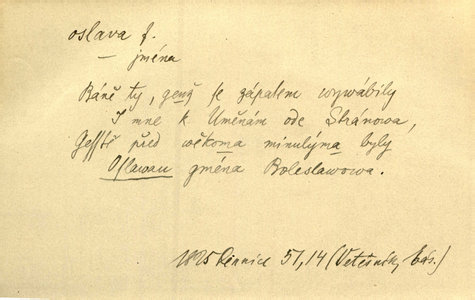 oslava f.
— jména
Báně ty, genž se zápalem wywábily
I mne k Uměnám ode Stránowa,
Gessstě před wěkoma minulýma byly
Oslawau gména Boleslawowa.
1825 Čennice 57, 14 (Vetešník, bás.)